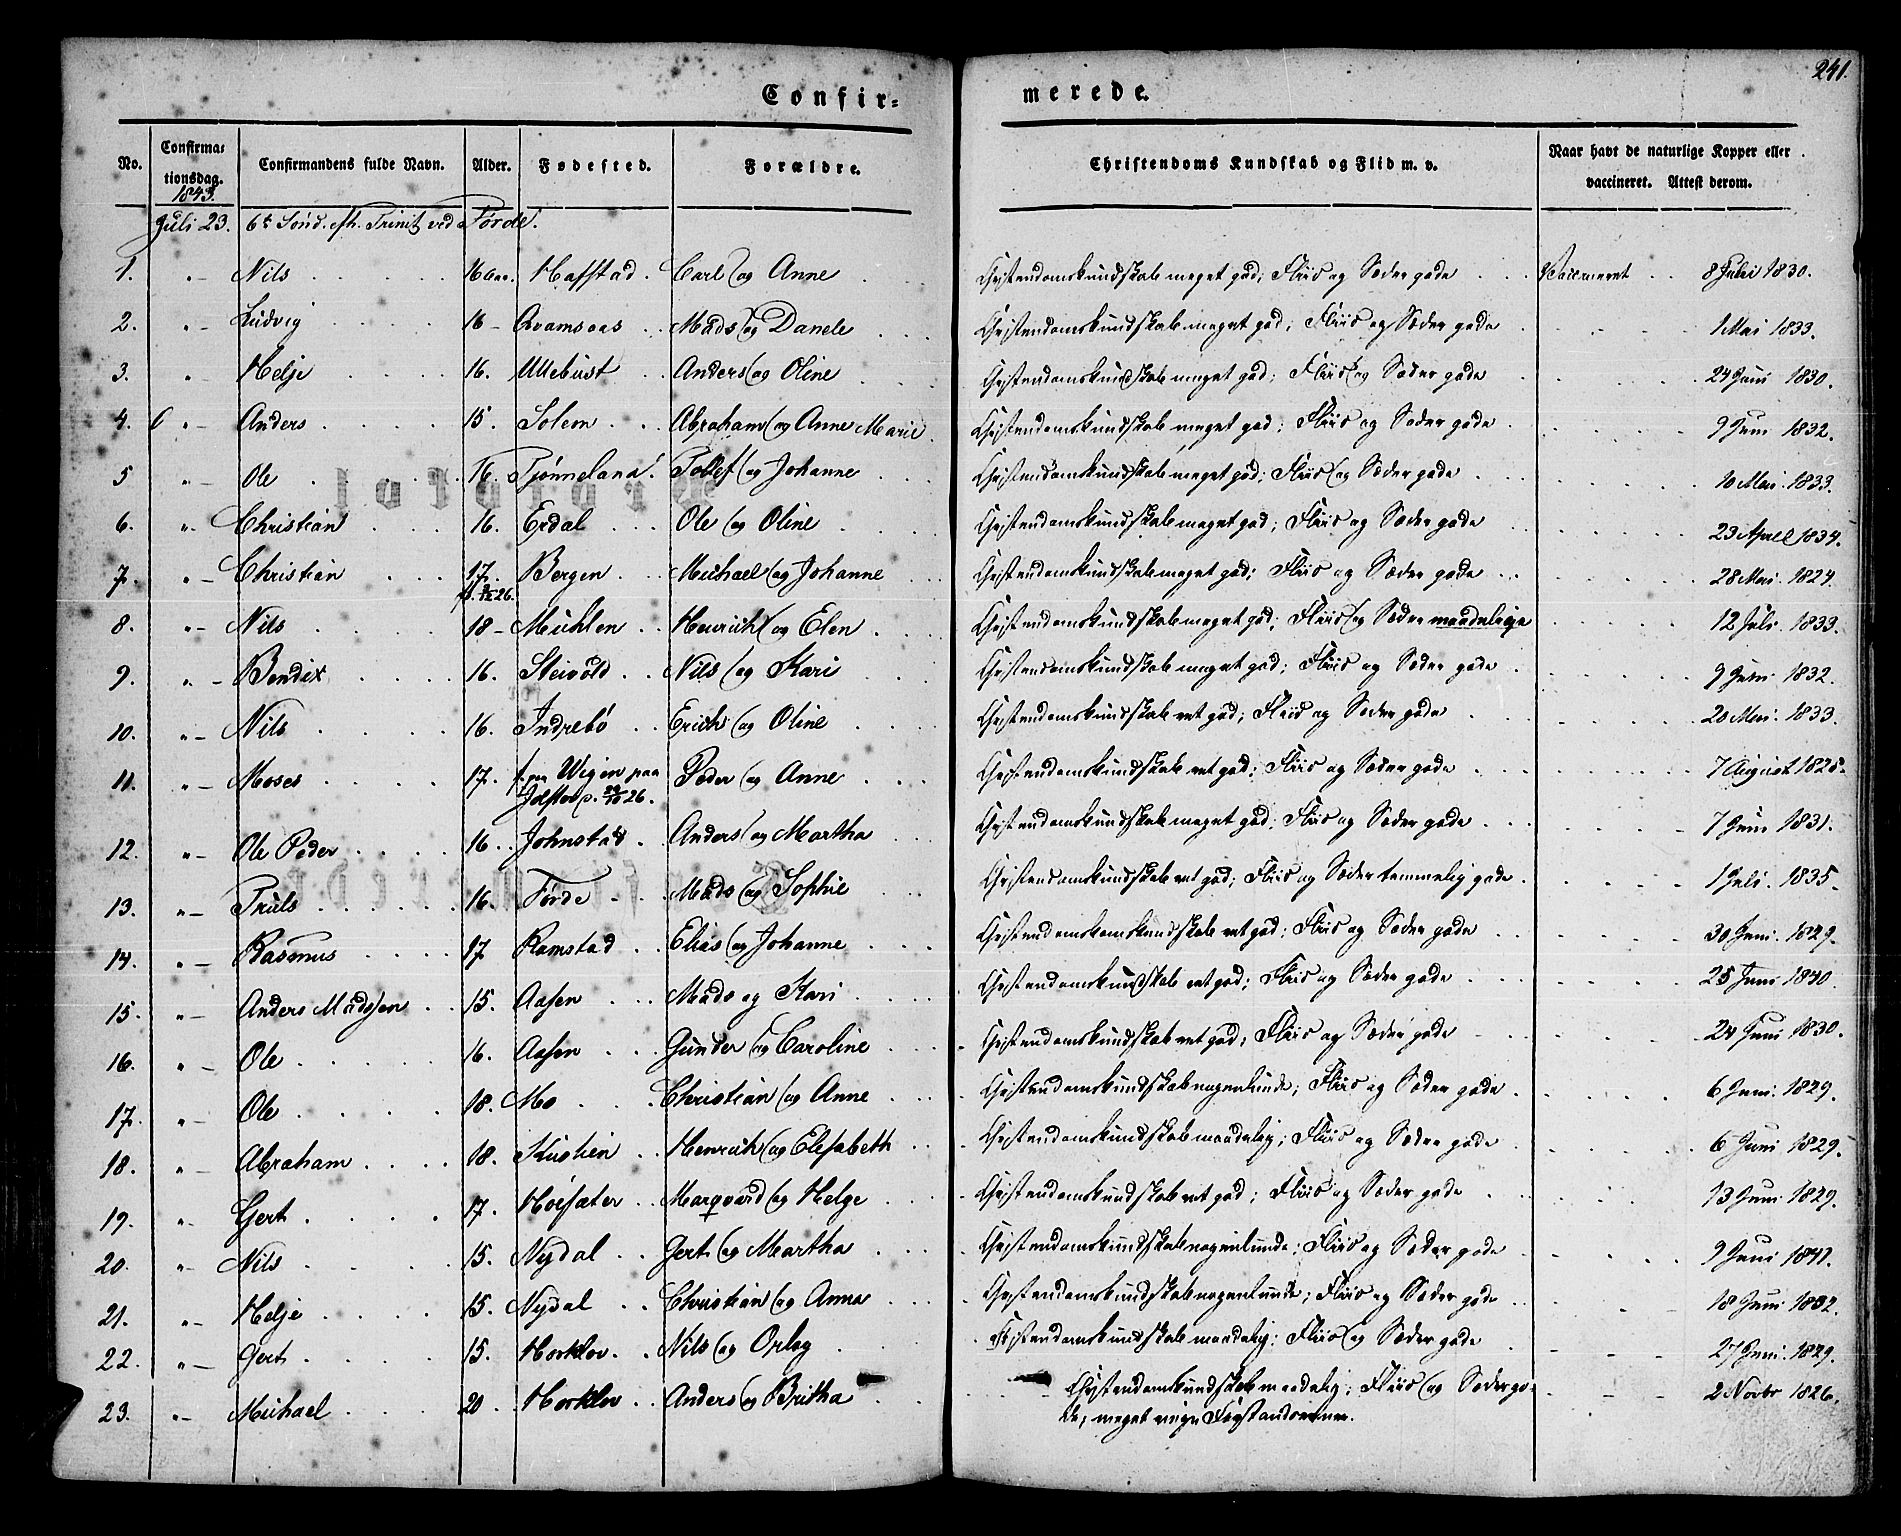 241.
Confir=
merede.
No. Confirma= tionsdag. Confirmandens fulde Navn. Alder. Fødested. Forældre. Christendoms Kundskab og Flid m. v. Naar havt de naturlige Kopper eller vaccineret. Attest derom.
1843.
Juli 23. 6te Sønd. eft. Trinit. ved Førde.
1. " - Nils 16 Aar. Hafstad Carl og Anne Christendomskundskab meget god; Fliid og Sæder gode Vaccineret 8 Juli 1830.
2. " - Ludvig 16 - Qvamsaas Mads og Danele Christendomskundskab meget god; Fliid og Sæder gode 1 Mai 1833.
3. " Helje 16. Ullebust Anders og Oline Christendomskundskab meget god; Fliid og Sæder gode 24 Juni 1830.
4. " - Anders 15. Solem Abraham og Anne Marie Christendomskundskab meget god; Fliid og Sæder gode 9 Juni 1832.
5 " - Ole 16. Tjønneland Tollef og Johanne Christendomskundskab meget god; Fliid og Sæder gode 10 Mai 1833.
6. " Christian 16. Erdal Ole og Oline Christendomskundskab meget god; Fliid og Sæder gode 23 April 1834.
7. " - Christian 17. Bergen Michael og Johanne Christendomskundskab meget god; Fliid og Sæder gode 28 Mai 1824.
8. " - Nils 18 - Mühlen Henrich og Elen Christendomskundskab meget god; Fliid og Sæder maadelige 12 Juli 1833.
9. " - Bendix 16. Steivold Nils og Kari Christendomskundskab meget god; Fliid og Sæder gode 9 Juni 1832.
10. " - Nils 16. Indrebø Erich og Oline Christendomskundskab ret god; Fliid og Sæder gode 20 Mai 1833.
11. " - Moses 17. Wigen paa Jølster Peder og Anne Christendomskundskab ret god; Fliid og Sæder gode 7 August 1828.
12. " - Ole Peder 16. Johnstad Anders og Martha Christendomskundskab meget god; Fliid og Sæder gode 7 Juni 1831.
13. " - Truls 16. Førde Mads og Sophie Christendomskundskab ret god; Fliid og Sæder temmelig gode 1 Juli 1835.
14. " - Rasmus 17 Ramstad Elias og Johanne Christendomskundskab ret god; Fliid og Sæder gode 30 Juni 1829.
15. " - Anders Madssen 15. Aasen Mads og Kari Christendomskundskab ret god; Fliid og Sæder gode 25 Juni 1840.
16. " - Ole 16. Aasen Gunder og Caroline Christendomskundskab ret god; Fliid og Sæder gode 24 Juni 1830.
17. " - Ole 18. Mo Christian og Anne Christendomskundskab nogenlunde; Fliid og Sæder gode 6 Juni 1829.
18. " - Abraham 18. Kusslien Henrich og Elisabeth Christendomskundskab maadelig; Fliid og Sæder gode 6 Juni 1829.
19. " - Gert 17. Høisæter Marqvard og Helge Christendomskundskab ret god; Fliid og Sæder gode 13 Juni 1829.
20. " - Nils 15. Nydal Gert og Martha Christendomskundskab nogenlunde; Fliid og Sæder gode 9 Juni 1841.
21. " - Helje 15. Nydal Christian og Anna Christendomskundskab nogenlunde; Fliid og Sæder gode 18 Juni 1832.
22. " - Gert 15. Horklov Nils og Orløg Christendomskundskab maadelig; Fliid og Sæder gode 27 Juni 1829.
23. " - Michael 20 Horklov Anders og Britha Christendomskundskab maadelig; Fliid og Sæder go=
de, meget ringe Forstandsevner. 2 Novbr 1826.